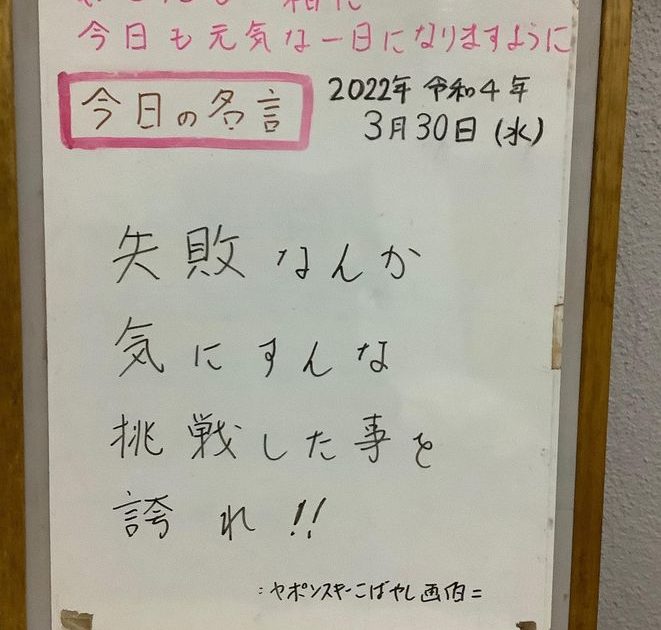 今日も元気な一日になりますように
今日の名言
2022年 令和4年
3月30日(水)
失敗なんか
気にすんな
挑戦した事を
誇れ!!
:ヤポンスキーこばやし画伯=